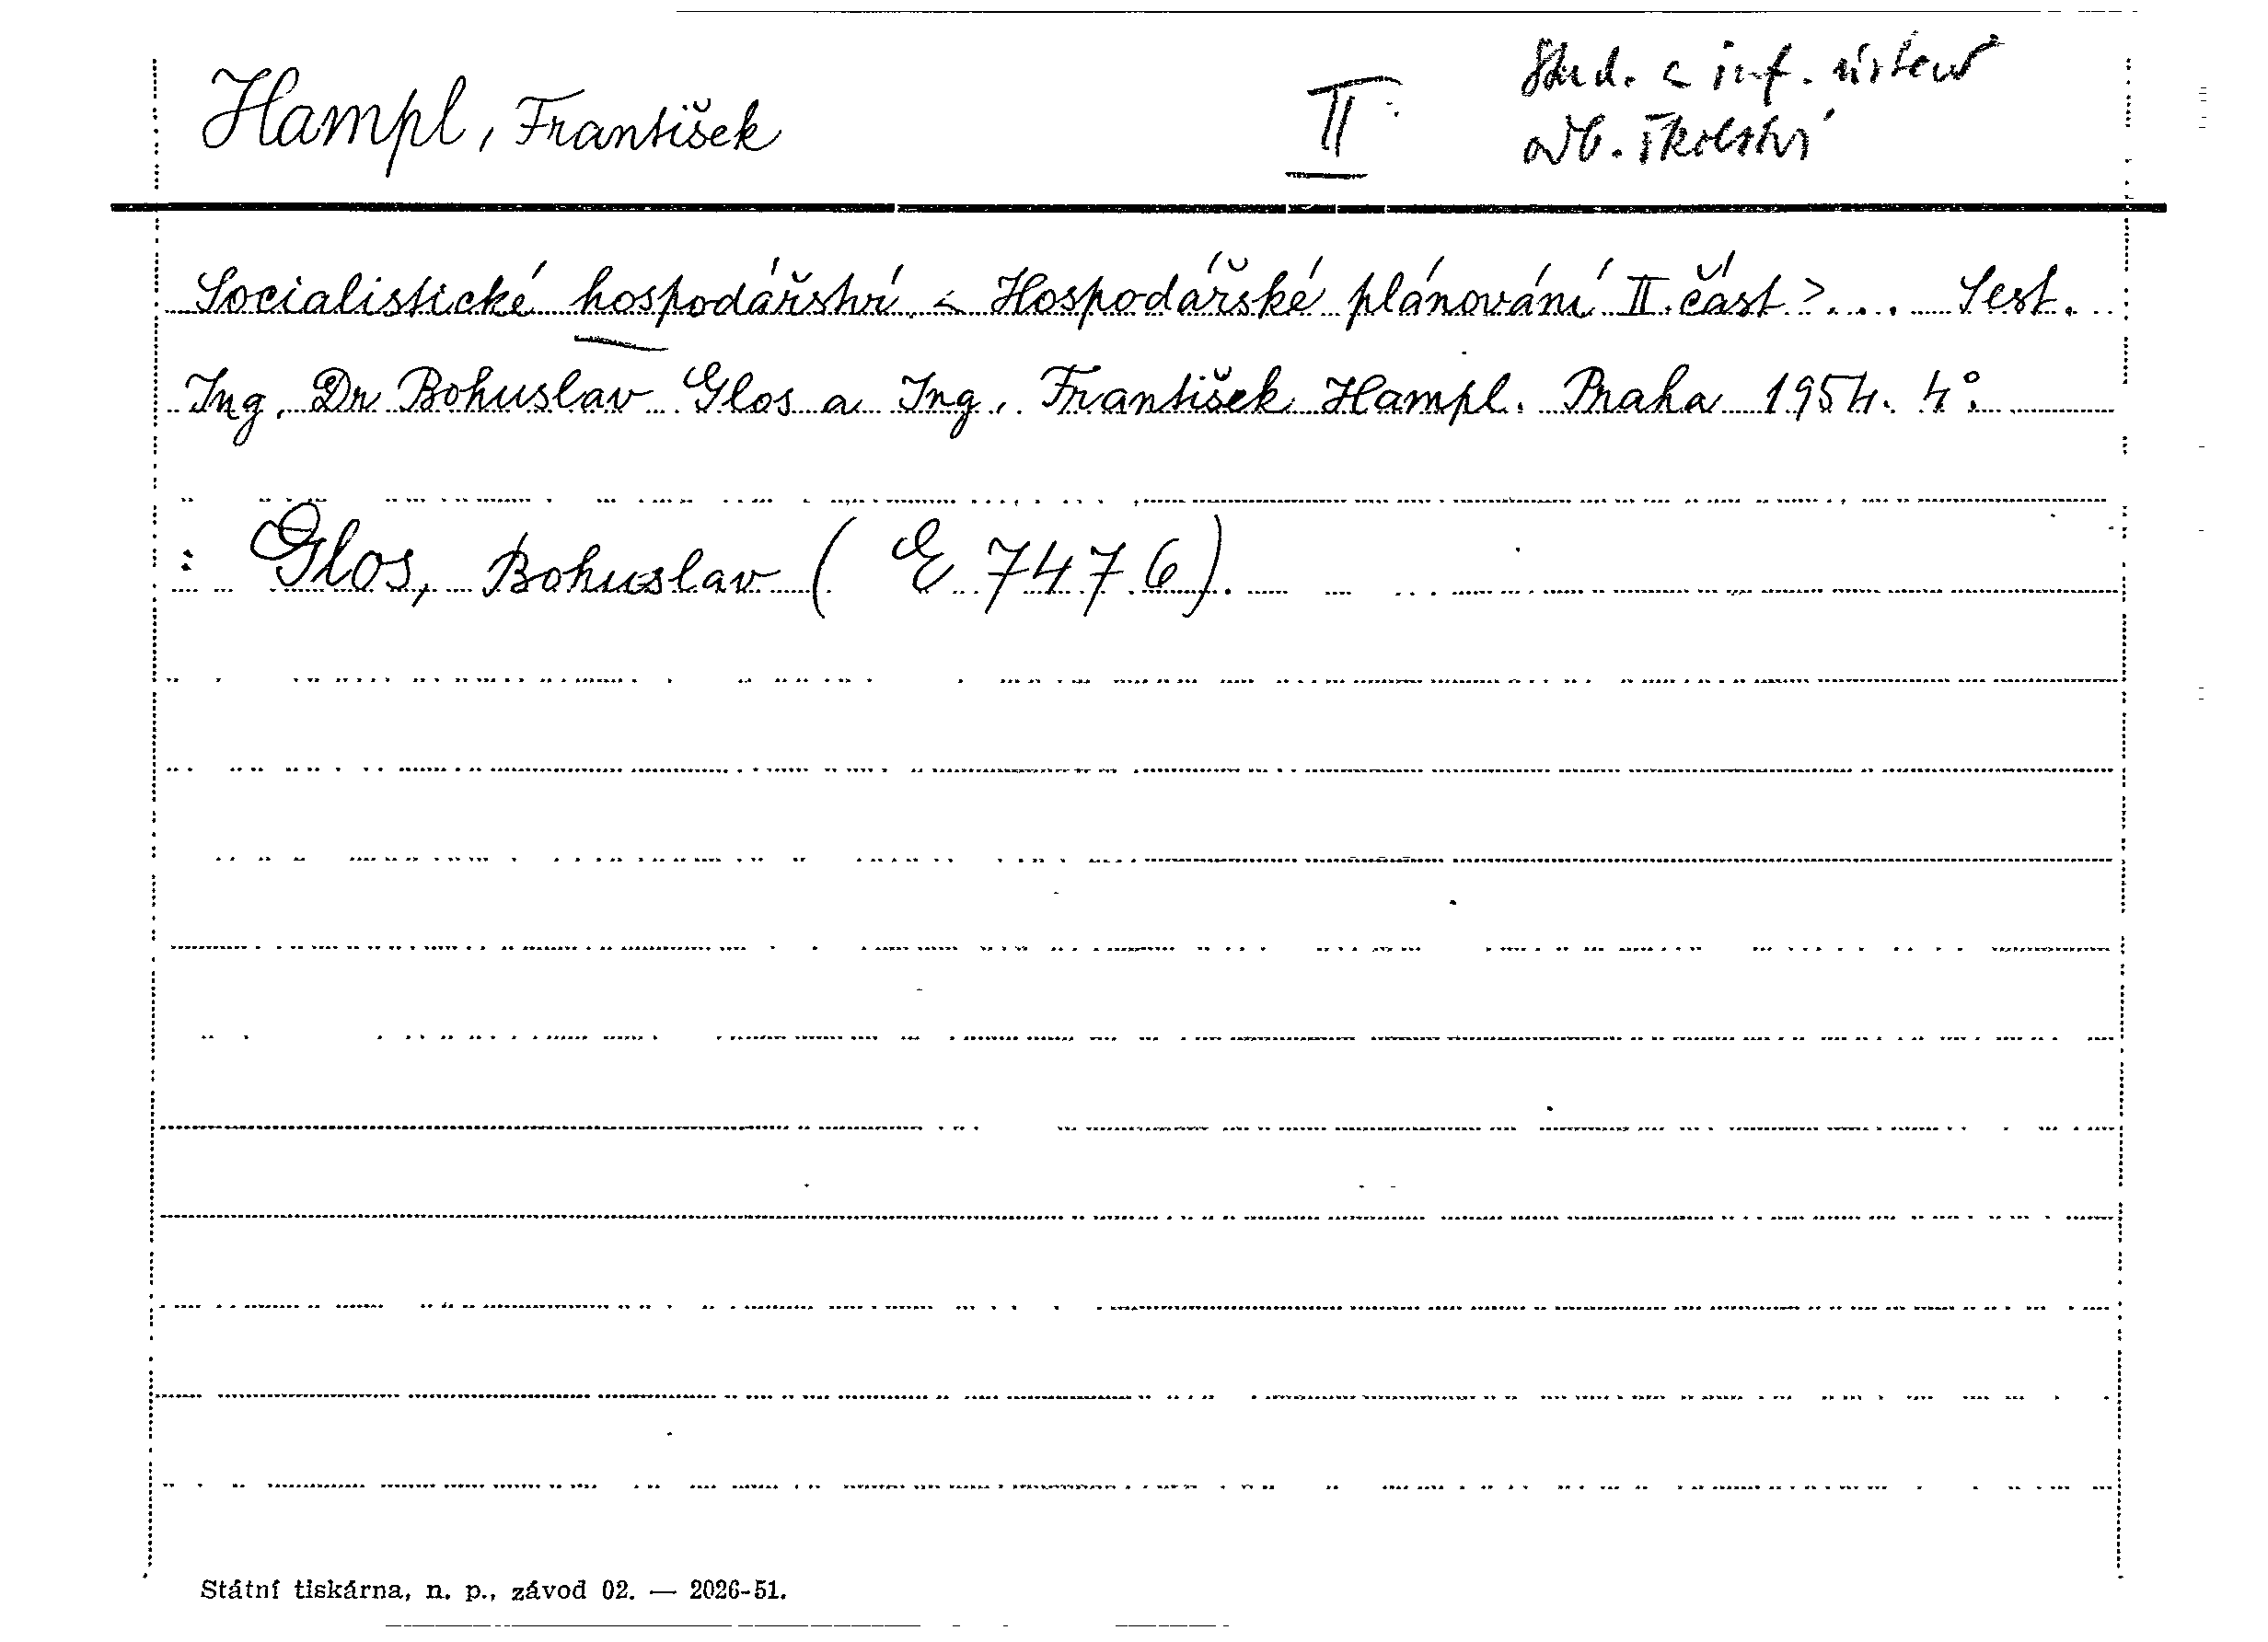 Hampl, František II Stud. a inf. ústav
odb. školství
Socialistické hospodářství < Hospodářské plánování II. část >... Sest.
Ing. Dr Bohuslav Glos a Ing. František Hampl. Praha 1954. 4°.
: Glos, Bohuslav ( E 7476).
Státní tiskárna, n. p., závod 02. — 2026-51.